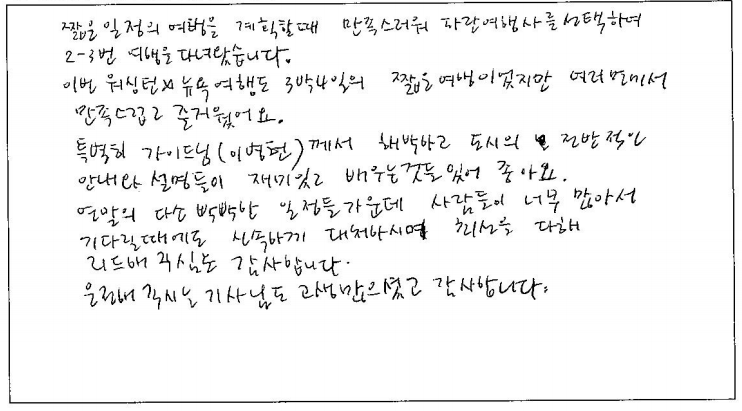 짧은 일정의 여행을 계획할때 만족스러워 파란여행사를 선택하여
2-3번 여행을 다녀왔습니다.
이번 워싱턴과 뉴욕여행도 3박4일의 짧은 여행이었지만 여러면에서
만족스럽고 즐거웠어요.
특별히 가이드님(이병헌)께서 해박하고 도시의 전반적인
안내와 설명들이 재미있고 배우는것들있어 좋아요.
연말의 다소 빡빡한 일정들가운데 사람들이 너무 많아서
기다릴때에도 신속하게 대처하시며 최선을 다해
리드해 주심도 감사합니다.
운전해 주시는 기사님도 고생많으셨고 감사합니다.